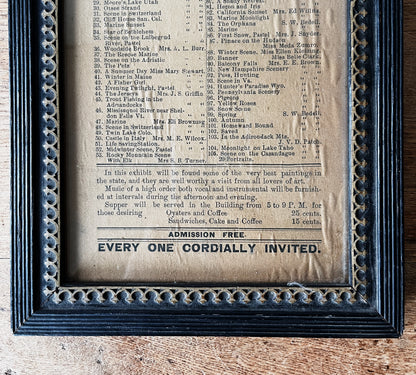 29. Moore's Lake Utah
31. Scene in Switzerland
32. Cliff House San. Cal.
33. Marine Sunset
34. Star of Bethlehem
35. Scene on the Loibegrul
River, Pastel
36. Woodbein Brook Mrs. A. L. Burr.
37. The Rescue
38. Scene on the Adriatic
39. The Pets
40. A Summer Day Miss Mary Stewart.
41. Winter in Maine
42. A Fisher Girl
43. Evening Twilight, Pastel
44. The Jewels Mrs. J. S. Griffin.
45. Trout Fishing in the
Adirondacks
46. Mississippi River near Shel-
don Falls Vt.
47. Marine Mrs. Eli Browning
48. Scene in Switzerland
49. Twin Lake Ohio.
50. Castle in Italy Mrs. M. E. Wilcox.
51. Life Saving Station.
52. Midwinter Scene, Pastel
53. Rocky Mountain Scene
With Elk Mrs. S. B. Turner.
81. California Sunset Mrs. Ellis Wittington.
82. Marine Moonlight
84. The Orphans S. W. Bedell.
85. Marine
86. First Snow, Pastel Mrs. J. Snyder.
87. Pinace on the Hudson
Miss Meda Zumro.
88. Winter Scene, Miss Ellen Koethen.
89. Banner Miss Belle Clark.
90. Balceny Falls Mrs. E. E. Brown.
91. New Hampshire Scenery
92. Poss, Hunting
93. Scene in Va.
94. Hunter's Paradise Wyo.
95. Pennsylvania Scenery
96. Pigeons
97. Yellow Roses
98. Snow Scene
99. Spring S. W. Bedell.
100. Autumn
101. Homeward Bound
102. Saved
103. In the Adirondack Mts.
J. V. D. Patch.
104. Moonlight on Lake Taho
105. Scene on the Casandague
29 Portraits.
In this exhibit will be found some of the very best paintings in
the state, and they are well worthy a visit from all lovers of art.
Music of a high order both vocal and instrumental will be furnish-
ed at intervals during the afternoon and evening.
Supper will be served in the Building from 5 to 9 P. M. for
those desiring Oysters and Coffee 25 cents.
Sandwiches, Cake and Coffee 15 cents.
ADMISSION FREE.
EVERY ONE CORDIALLY INVITED.